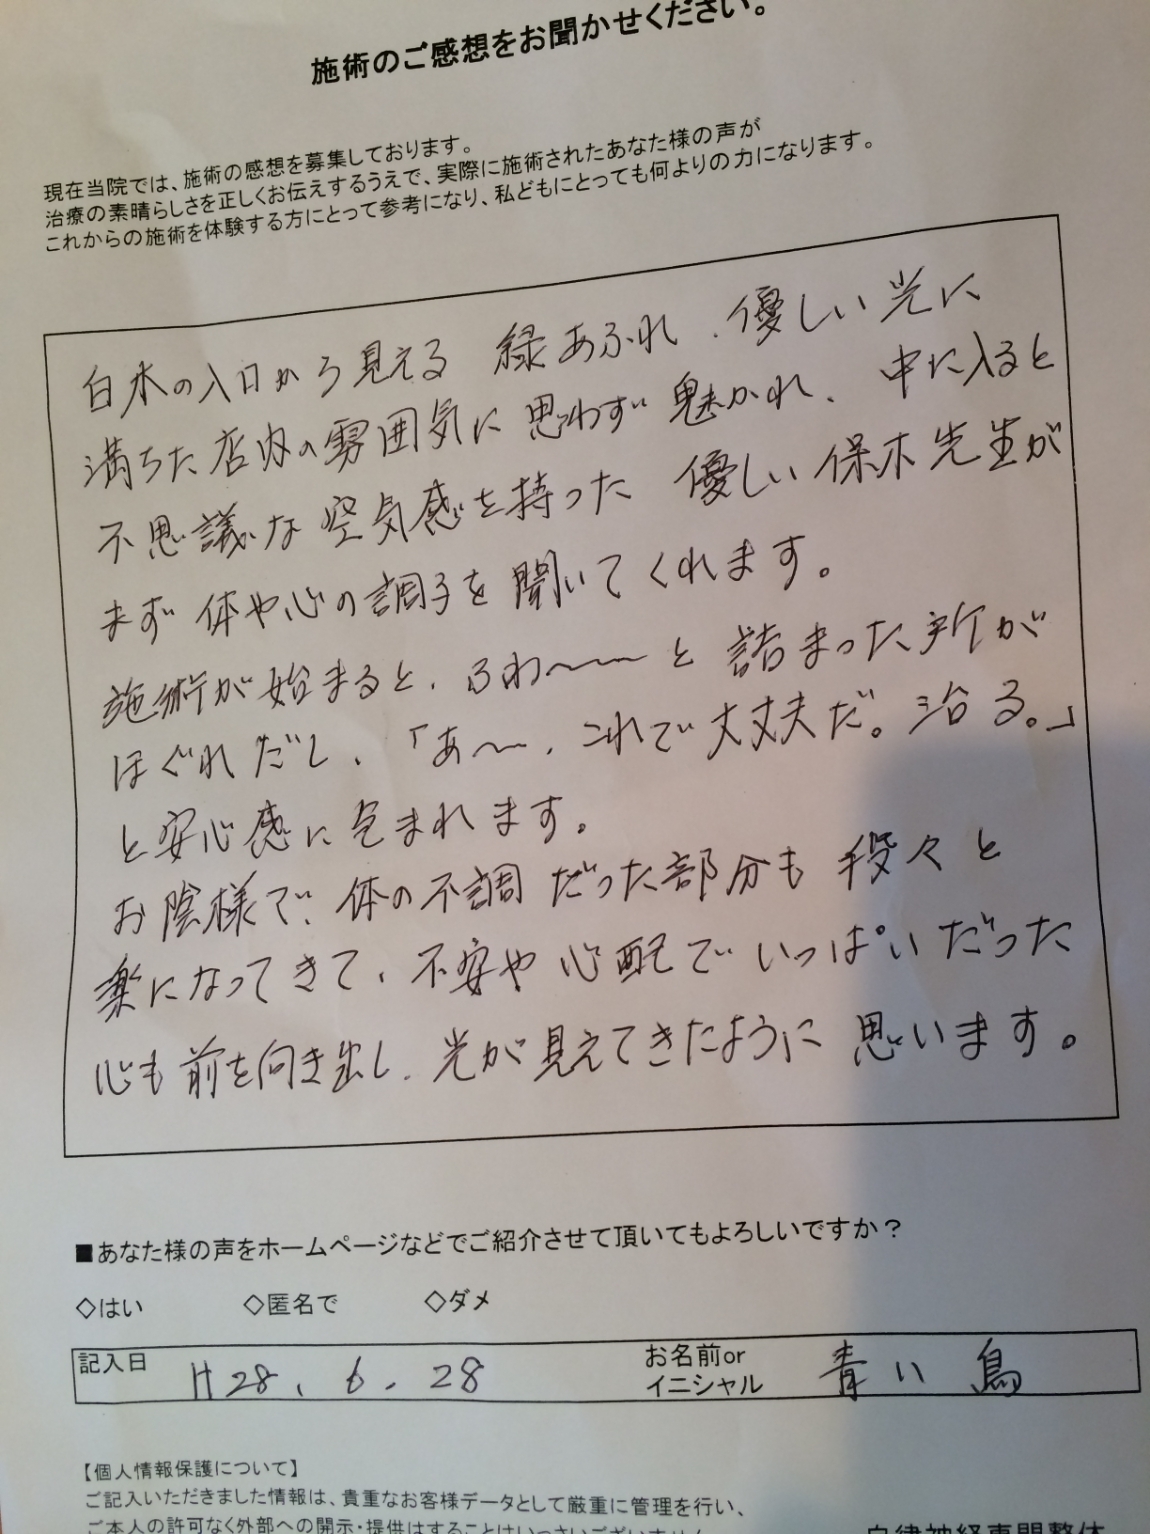 施術のご感想をお聞かせください。
現在当院では、施術の感想を募集しております。
治療の素晴らしさを正しくお伝えするうえで、実際に施術されたあなた様の声が
これからの施術を体験する方にとって参考になり、私どもにとっても何よりの力になります。
白木の入口から見える 緑あふれ、優しい光に
満ちた店内の雰囲気に思わず魅かれ、中に入ると
不思議な空気感を持った 優しい保木先生が
まず体や心の調子を聞いてくれます。
施術が始まると、ふわ〜〜〜と詰まった所が
ほぐれだし、「あ〜〜、これで大丈夫だ。治る。」
と安心感に包まれます。
お陰様で、体の不調だった部分も段々と
楽になってきて、不安や心配でいっぱいだった
心も前を向き出し、光が見えてきたように思います。
■あなた様の声をホームページなどでご紹介させて頂いてもよろしいですか？
◇はい ◇匿名で ◇ダメ
記入日 H28.6.28 お名前or
イニシャル 青い鳥
【個人情報保護について】
ご記入いただきました情報は、貴重なお客様データとして厳重に管理を行い、
ご本人の許可なく外部への開示・提供はすることはいっさいございません
自律神経専門整体